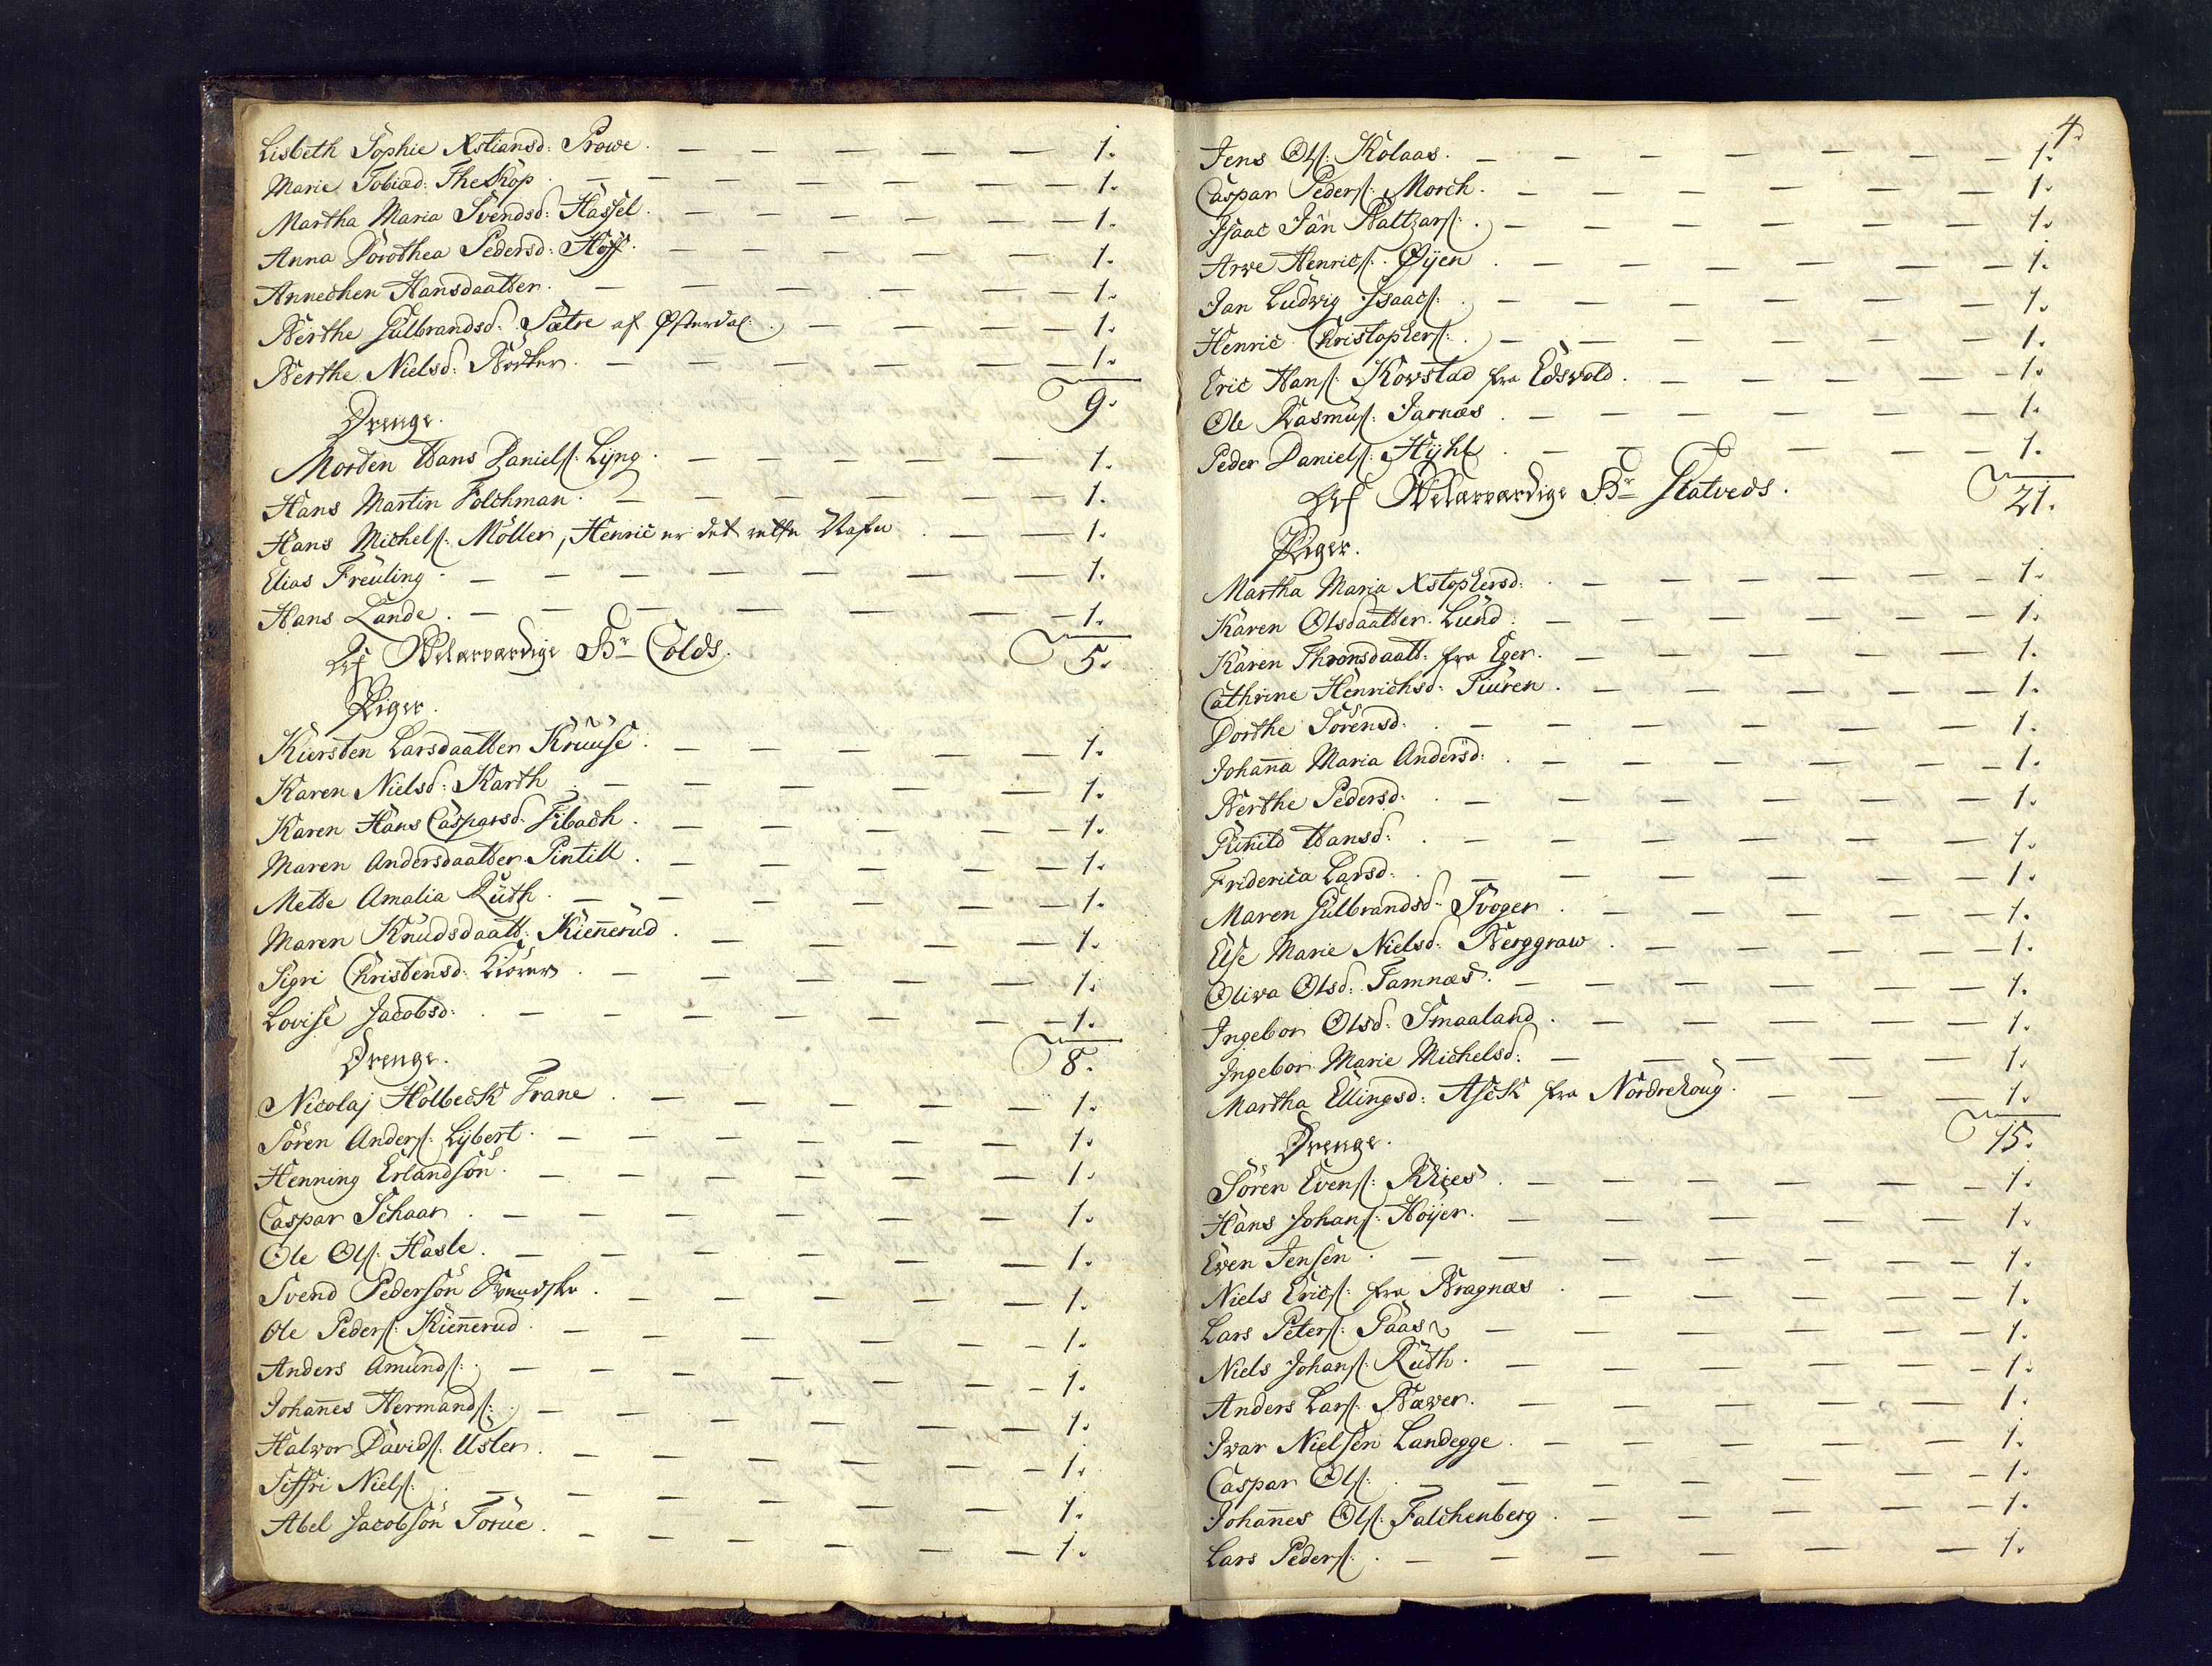 Lisbeth Sophie Xstiansd: Prowe. — — — — — 1.
Marie Tobiæd: Theskop. — — — — — — 1.
Martha Maria Svendsd: Hassel. — — — — — 1.
Anna Dorothea Pedersd: Hoff. — — — — — 1.
Annechen Hansdaatter. — — — — — — 1.
Berthe Gulbrandsd: Sætre af Østerdal. — — — — 1.
Berthe Nielsd: Börcker. — — — — — — 1.
9.
Drenge.
Morten Hans Daniels: Lyng. — — — — — 1.
Hans Martin Folchman. — — — — — — 1.
Hans Michels: Möller, Henric er det rette Nafn. — — 1.
Elias Freuling. — — — — — — — 1.
Hans Lande. — — — — — — — 1.
Af Welærværdige Hr Colds.
5.
Piger.
Kiersten Larsdaatter Kruuse. — — — — — 1.
Karen Nielsd: Karth. — — — — — — 1.
Karen Hans Caspersd: Fibach. — — — — — 1.
Maren Andersdaatter Pintill. — — — — — 1.
Mette Amalia Ruth. — — — — — — 1.
Maren Knudsdaatt: Kiennerud. — — — — — 1.
Sigri Christensd: Kiörer. — — — — — 1.
Lovise Jacobsd: — — — — — — — 1.
8.
Drenge.
Nicolaj Holbeck Frane. — — — — — 1.
Sören Anders: Lybert. — — — — — — 1.
Henning Erlandsön. — — — — — — 1.
Caspar Schaar. — — — — — — 1.
Ole Ols: Hasle. — — — — — — 1.
Svend Pedersön — — — — — 1.
Ole Peders: Kiennerud. — — — — — — 1.
Anders Amunds: — — — — — — — 1.
Johannes Hermands: — — — — — — 1.
Halvor Davids: Usler. — — — — — — 1.
Siffri Niels: — — — — — — 1.
Abel Jacobsön Torue. — — — — — — 1.
4.
Jens Ols: Kolaas. — — — — — — — 1.
Caspar Peders: Morch. — — — — — — 1.
Isaac Jan Baltzars: — — — — — — 1.
Arve Henrics: Øyen. — — — — — — 1.
Jan Ludvig Isaacs: — — — — — — 1.
Henric Christophers: — — — — — — 1.
Eric Hans: Kovstad fra Edsvold. — — — — — 1.
Ole Rasmus: Jarnæs. — — — — — — 1.
Peder Daniels: Hyhl. — — — — — — 1.
Af Welærværdige Hr Statveds.
21.
Piger.
Martha Maria Xstophersd: — — — — — — 1.
Karen Olsdaatter Lund. — — — — — — 1.
Karen Thronsdaatt: fra Eger. — — — — — 1.
Cathrine Henrichsd: Tiuren. — — — — — 1.
Dorthe Sörensd: — — — — — — — 1.
Johanna Maria Andersd: — — — — — — 1.
Berthe Pedersd: — — — — — — — 1.
Runild Hansd: — — — — — — — 1.
Friderica Larsd: — — — — — — — 1.
Maren Gulbrandsd: Svoger. — — — — — 1.
Else Marie Nielsd: Berggraw. — — — — — 1.
Oliva Olsd: Tamnæs. — — — — — — 1.
Ingebor Olsd: Smaaland. — — — — — 1.
Ingebor Marie Michelsd: — — — — — — 1.
Martha Ellingsd: Asck fra Nordrehoug. — — — 1.
15.
Drenge.
Sören Evens: Rhies. — — — — — — 1.
Hans Johans: Hoijer. — — — — — — 1.
Even Jensen. — — — — — — — 1.
Niels Erics: fra Bragnæs. — — — — — 1.
Lars Peters: Paas — — — — — — 1.
Niels Johans: Ruth. — — — — — — 1.
Anders Lars: Bæver. — — — — — — 1.
Ivar Nielsen Landegge. — — — — — — 1.
Caspar Ols: — — — — — — — 1.
Johannes Ols: Falchenberg. — — — — — 1.
Lars Peders: — — — — — — — 1.